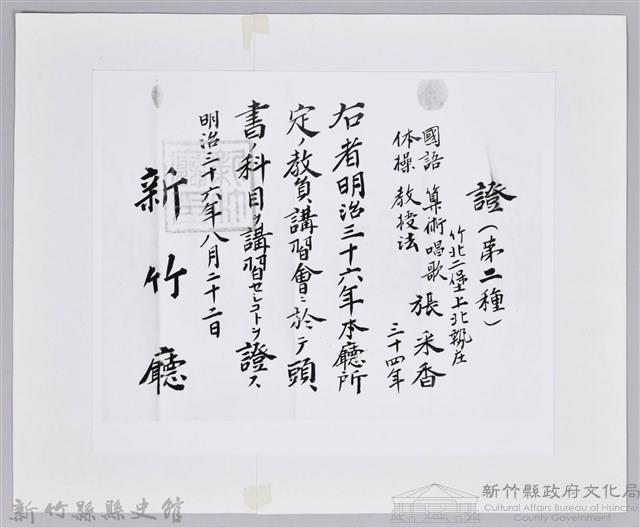 證(第二種)
竹北二堡上北勢庄
張采香
三十四年
國語 算術 唱歌
体操 教授法
右者明治三十六年本廳所
定ノ教員講習會ニ於テ頭
書ノ科目ヲ講習セシコトヲ證ス
明治三十六年八月二十二日
新竹廳
新竹縣縣史館
新竹縣政府文化局
Cultural Affairs Bureau of Hsinchu
County Government